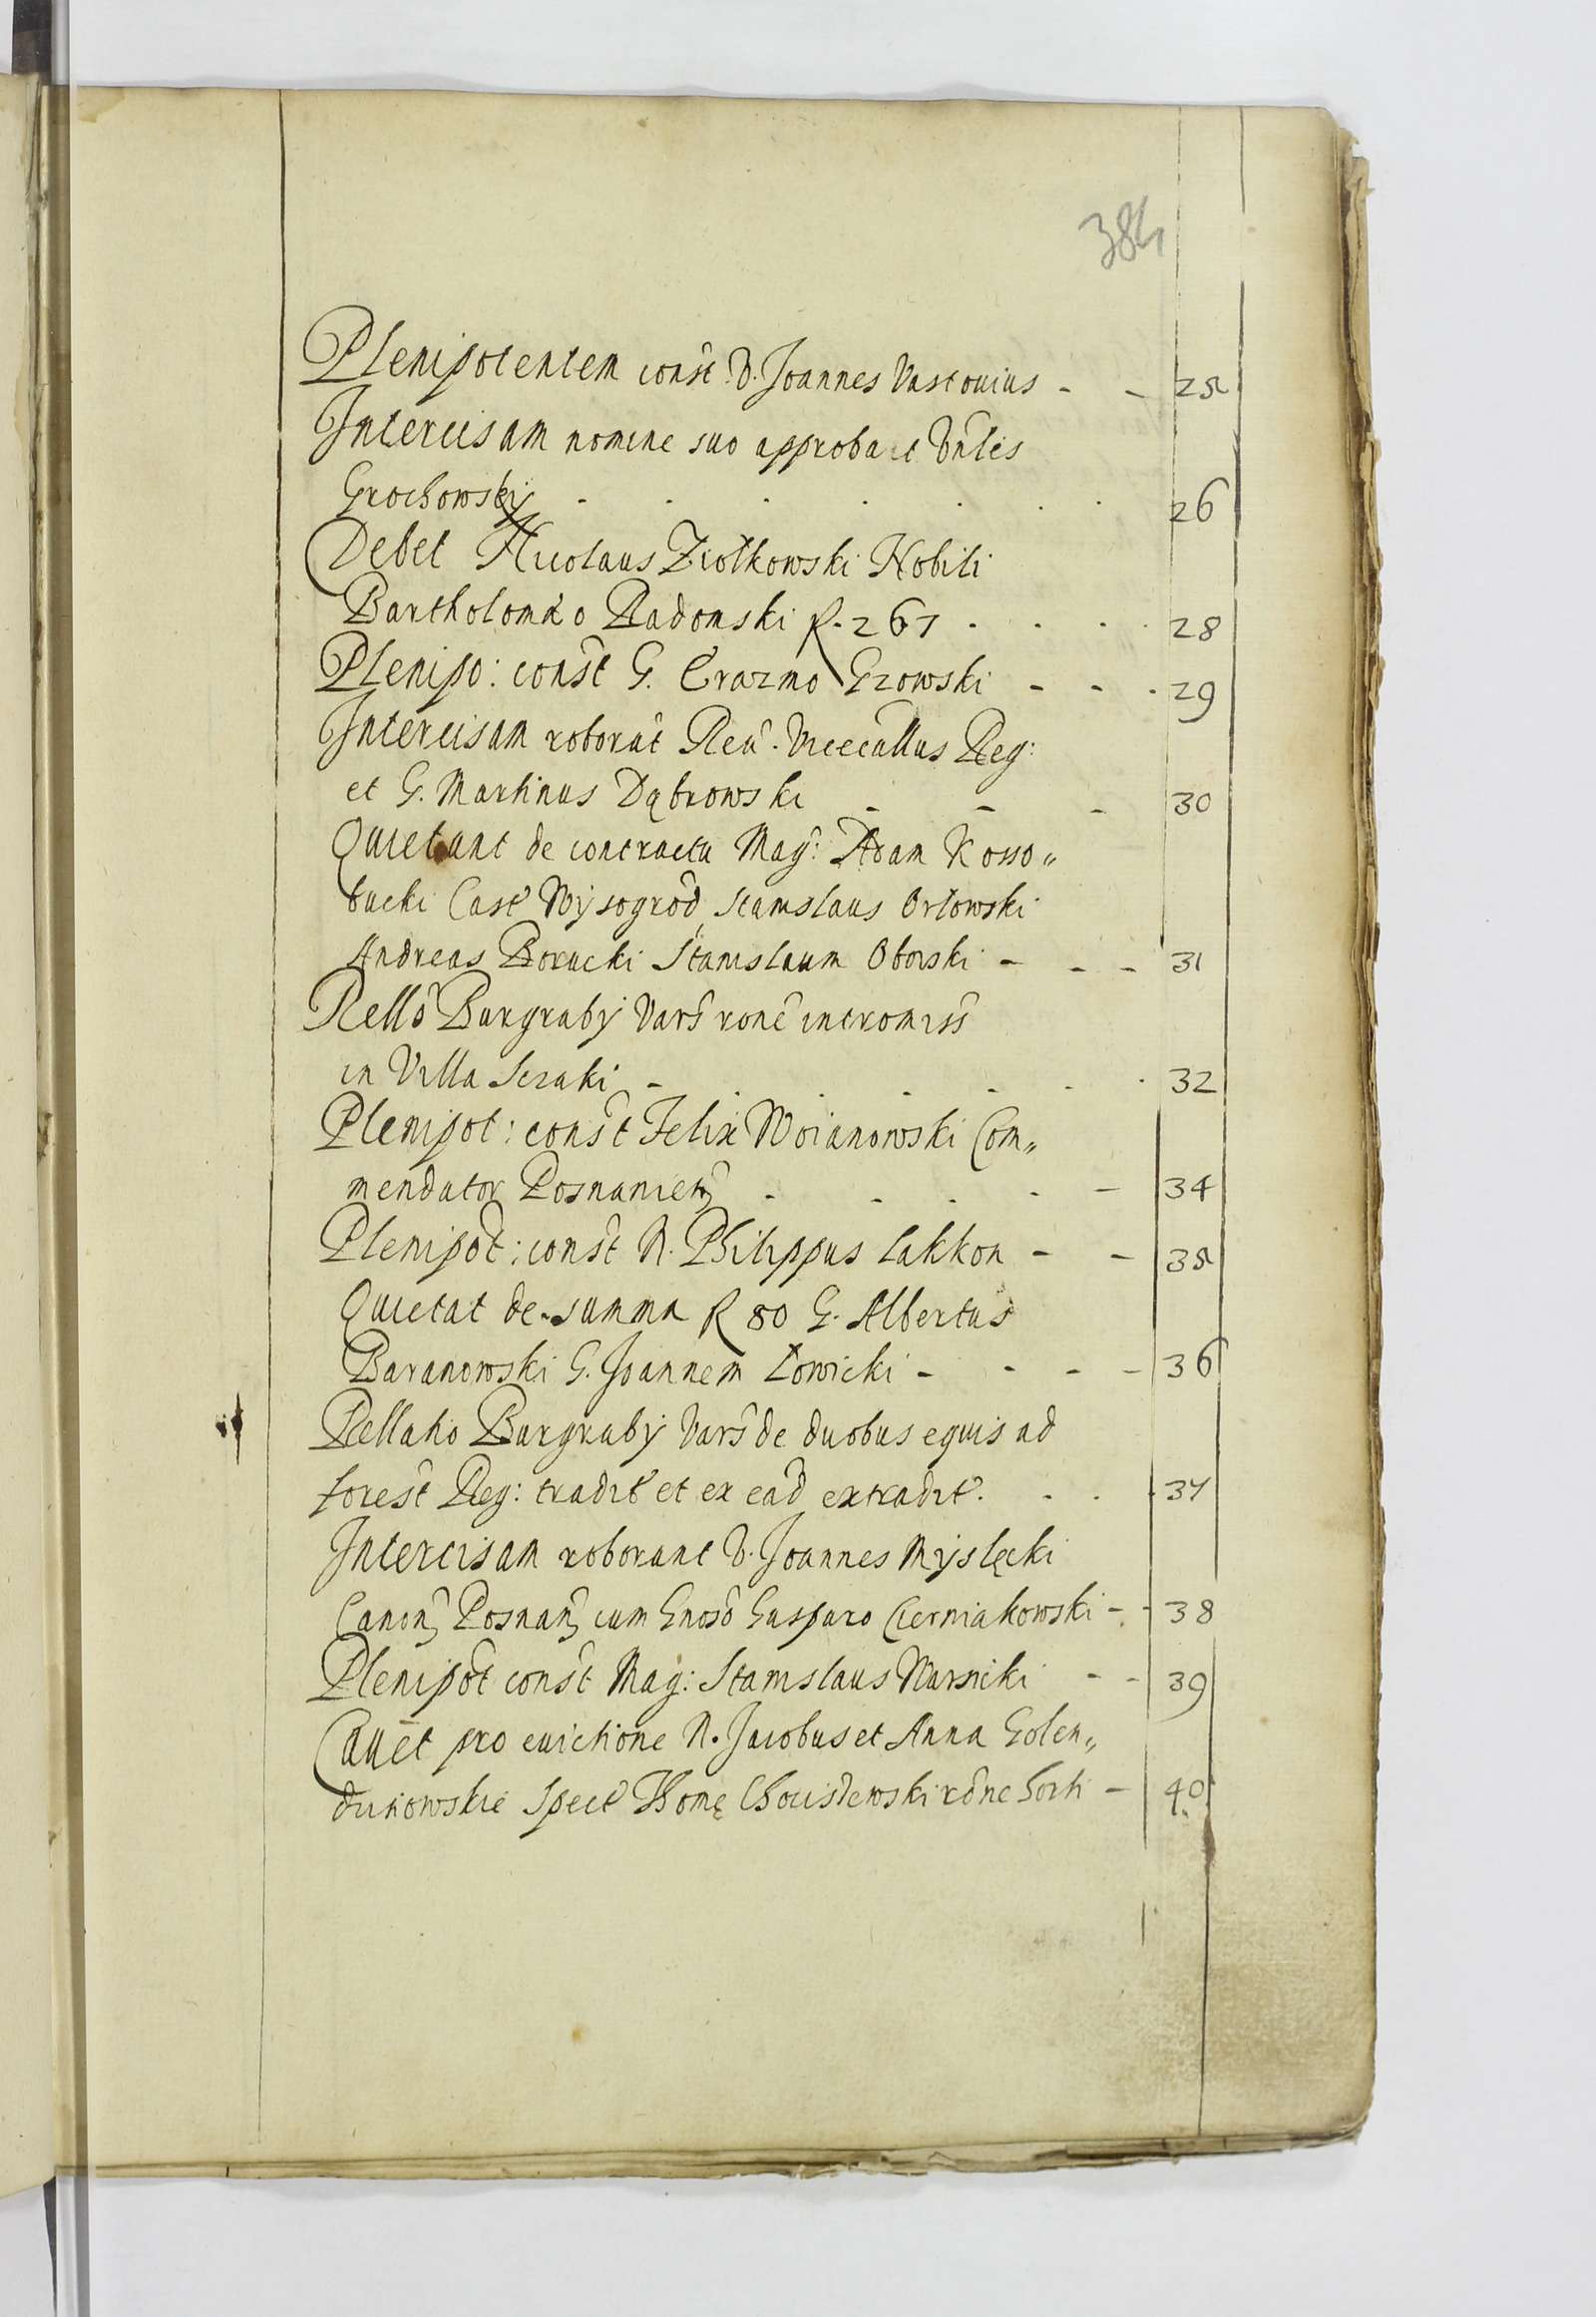 384
Plenipotentem const V. Joannes Vastouius - - 25
Intercisam nomine suo approbant Vnles
Grochowsky . . . . . . 26
Debet Nicolaus Ziołkowski Nobili
Bartholomæo Radomski R. 267 . . . . 28
Plenipo: const G. Erazmo Gzowski - - . 29
Intercisam roborat Reu. Vicecallus Reg:
et G. Martinus Dąbrowski - - - 30
Quietant de contractu Mag: Adam Kosso„
bucki Cast Wysogrod, Stanislaus Orłowski
Andreas Borucki Stanislaum Oborski - - - 31
Rello Burgraby Vars rone intromiss
in Villa Seraki - . . . . . . 32
Plenipot: const Felix Woianowski Com„
mendator Posnanien . . . . - 34
Plenipot: const N. Philippus Lakkon - - 35
Quietat de summa R 80 G. Albertus
Baranowski G. Joannem Łowicki - - - - 36
Rellatio Burgraby Vars de duobus equis ad
forest Reg: tradit et ex ead extradit . . . . 37
Intercisam roborant V. Joannes Myslęcki
Canon Posnan cum Gnoso Gasparo Czerniakowski - - 38
Plenipot const Mag: Stanislaus Warsicki - - 39
Cauet pro euictione N. Jacobus et Anna Golen„
dinowskie Spect Thomę rone - 40